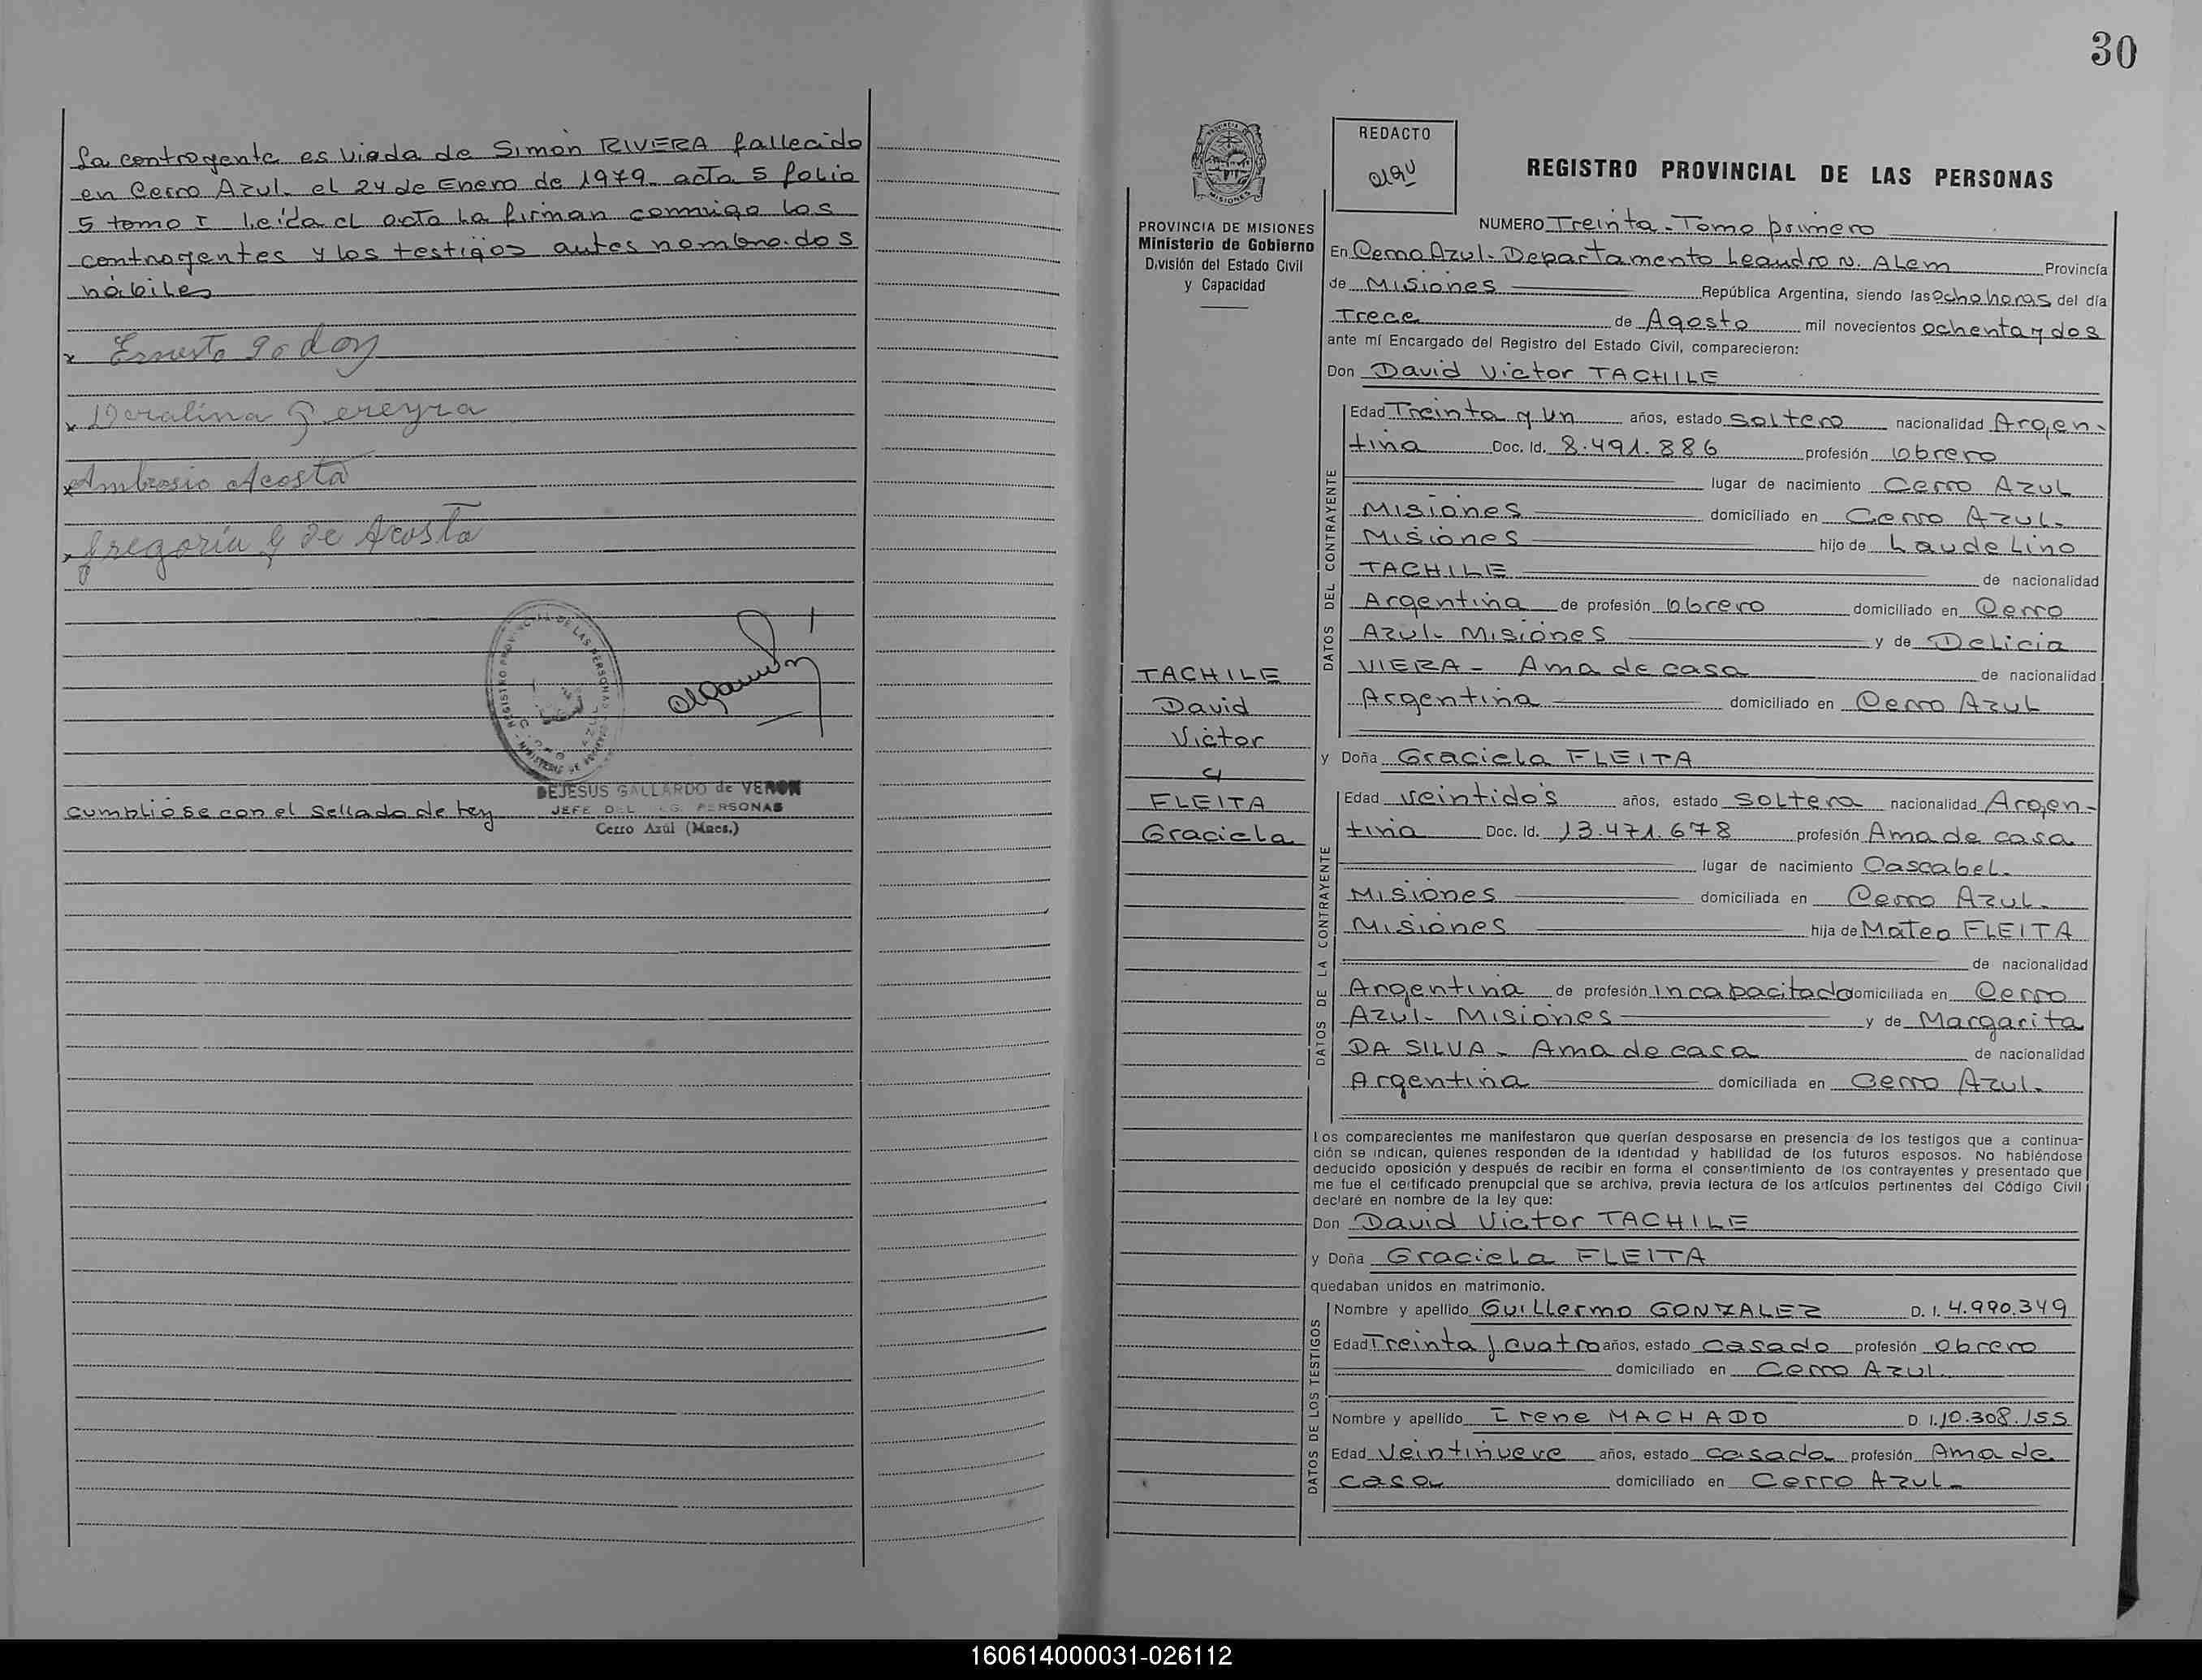 La contrayente es viuda de Simón RIVERA fallecido
en Cerro Azul. el 24 de Enero de 1979. acta 5 folio
5 tomo I leída el acta la firman conmigo los
contrayentes y los testigos antes nombrados
hábiles
x Ernesto Godoy
x Pereyra
x Ambrosio Acosta
x Gregoria G de Acosta
DEJESUS GALLARDO de VERON
cumplióse con el sellado de ley JEFE DEL PERSONAS
Cerro Azul (Mnes.)
30
REDACTO
REGISTRO PROVINCIAL DE LAS PERSONAS
PROVINCIA DE MISIONES
Ministerio de Gobierno
División del Estado Civil
y Capacidad
TACHILE
David
Victor
y
FLEITA
Graciela
NUMERO Treinta - Tomo primero
En Cerro Azul - Departamento Leandro N. ALem Provincia
de Misiones República Argentina, siendo las ocho horas del día
Trece de Agosto mil novecientos ochenta y dos
ante mí Encargado del Registro del Estado Civil, comparecieron:
Don David Victor TACHILE
DATOS DEL CONTRAYENTE
Edad Treinta y un años, estado soltero nacionalidad Argen-
tina Doc. Id. 8.491.886 profesión obrero
lugar de nacimiento Cerro Azul
Misiones domiciliado en Cerro Azul-
Misiones hijo de Laudelino
TACHILE de nacionalidad
Argentina de profesión obrero domiciliado en Cerro
Azul- Misiones y de Delicia
VIERA - Ama de casa de nacionalidad
Argentina domiciliado en Cerro Azul
y Doña Graciela FLEITA
DATOS DE LA CONTRAYENTE
Edad veintidós años, estado soltera nacionalidad Argen-
tina Doc. Id. 13.471.678 profesión Ama de casa
lugar de nacimiento Cascabel-
Misiones domiciliada en Cerro Azul-
Misiones hija de Mateo FLEITA
de nacionalidad
Argentina de profesión incapacitado domiciliada en Cerro
Azul- Misiones y de Margarita
DA SILVA - Ama de casa de nacionalidad
Argentina domiciliada en Cerro Azul-
Los comparecientes me manifestaron que querían desposarse en presencia de los testigos que a continua-
ción se indican, quienes responden de la identidad y habilidad de los futuros esposos. No habiéndose
deducido oposición y después de recibir en forma el consentimiento de los contrayentes y presentado que
me fue el certificado prenupcial que se archiva, previa lectura de los artículos pertinentes del Código Civil
declaré en nombre de la ley que:
Don David Victor TACHILE
y Doña Graciela FLEITA
quedaban unidos en matrimonio.
DATOS DE LOS TESTIGOS
Nombre y apellido Guillermo GONZALEZ D. I. 4.990.349
Edad Treinta y cuatro años, estado casado profesión obrero
domiciliado en Cerro Azul
Nombre y apellido Irene MACHADO D. I. 10.308.155
Edad Veintinueve años, estado casada profesión Ama de
casa domiciliado en Cerro Azul-
160614000031-026112